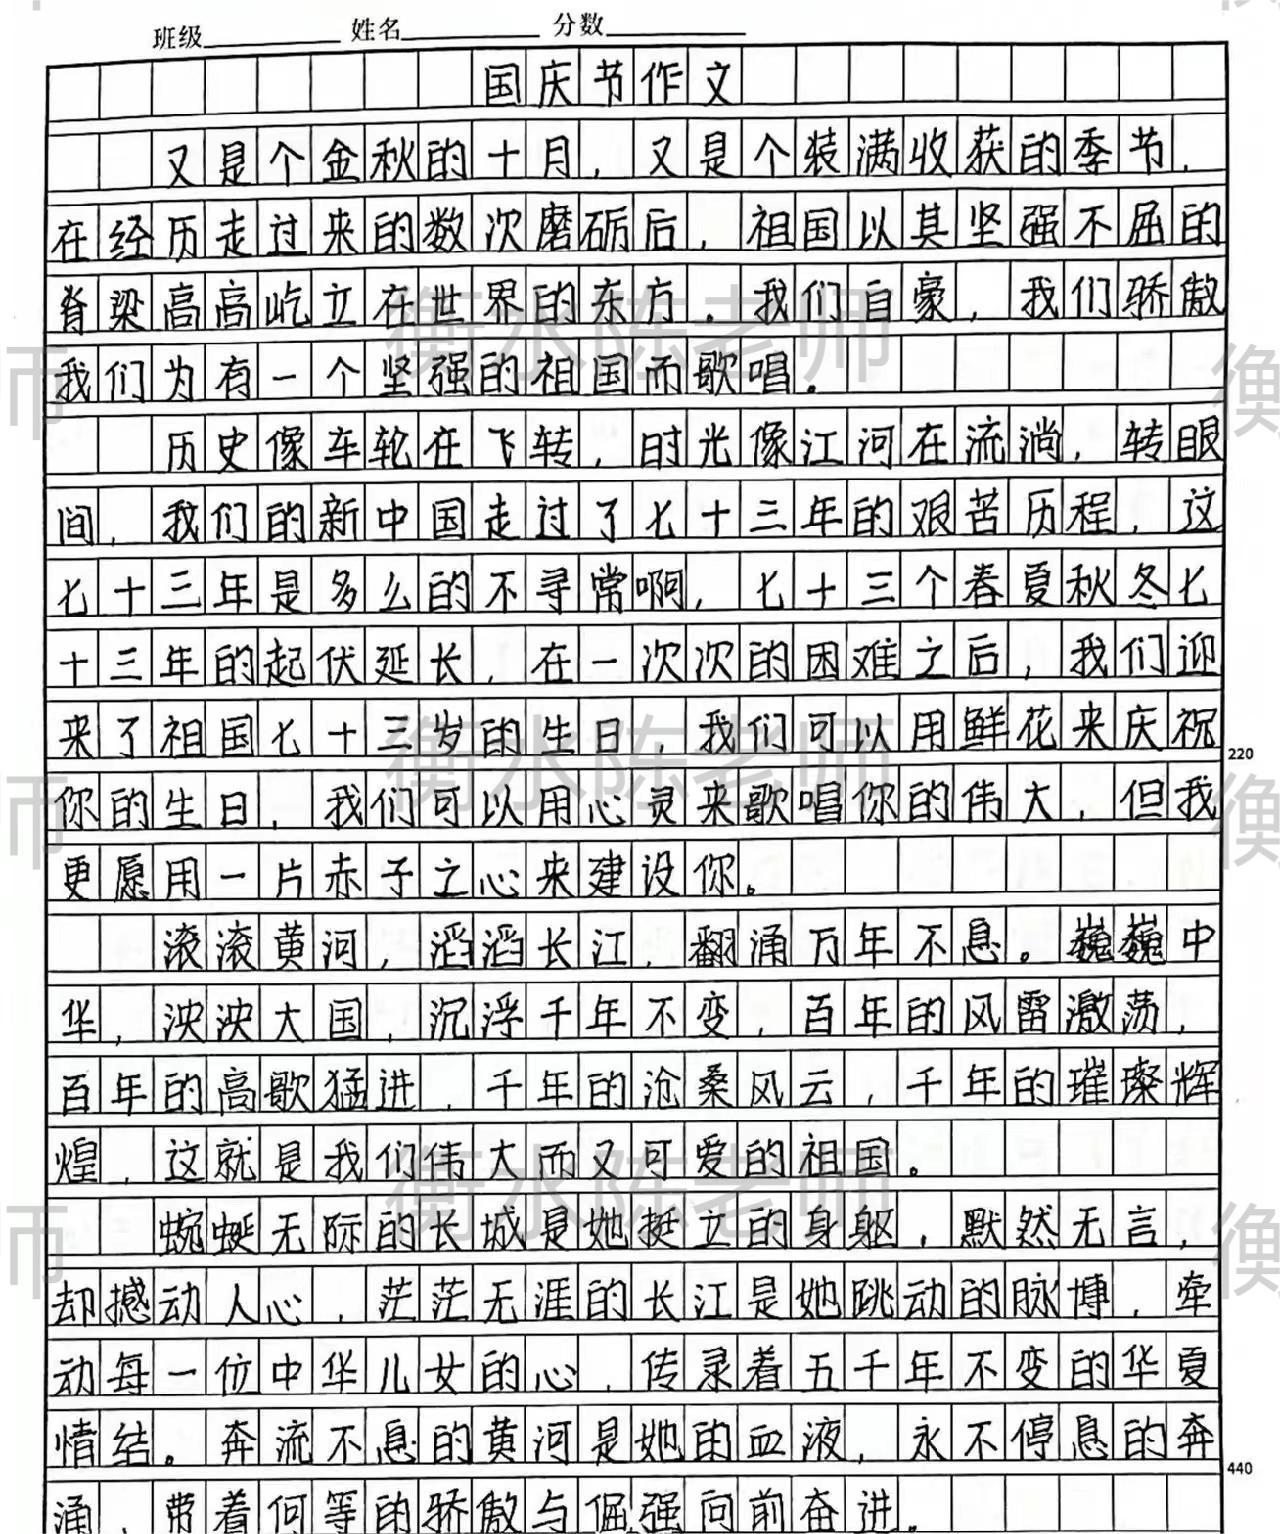 班级 姓名 分数
国庆节作文
又是个金秋的十月，又是个装满收获的季节，
在经历走过来的数次磨砺后，祖国以其坚强不屈的
脊梁高高屹立在世界的东方。我们自豪，我们骄傲
我们为有一个坚强的祖国而歌唱。
历史像车轮在飞转，时光像江河在流淌，转眼
间，我们的新中国走过了七十三年的艰苦历程，这
七十三年是多么的不寻常啊，七十三个春夏秋冬七
十三年的起伏延长，在一次次的困难之后，我们迎
来了祖国七十三岁的生日，我们可以用鲜花来庆祝
220
你的生日，我们可以用心灵来歌唱你的伟大，但我
更愿用一片赤子之心来建设你。
滚滚黄河，滔滔长江，翻涌万年不息。巍巍中
华，泱泱大国，沉浮千年不变，百年的风雷激荡，
百年的高歌猛进，千年的沧桑风云，千年的璀璨辉
煌，这就是我们伟大而又可爱的祖国。
蜿蜒无际的长城是她挺立的身躯，默然无言，
却撼动人心，茫茫无涯的长江是她跳动的脉搏，牵
动每一位中华儿女的心，传录着五千年不变的华夏
情结。奔流不息的黄河是她的血液，永不停息的奔
440
涌，带着何等的骄傲与倔强向前奋进。
衡水陈老师
衡水陈老师
衡水陈老师